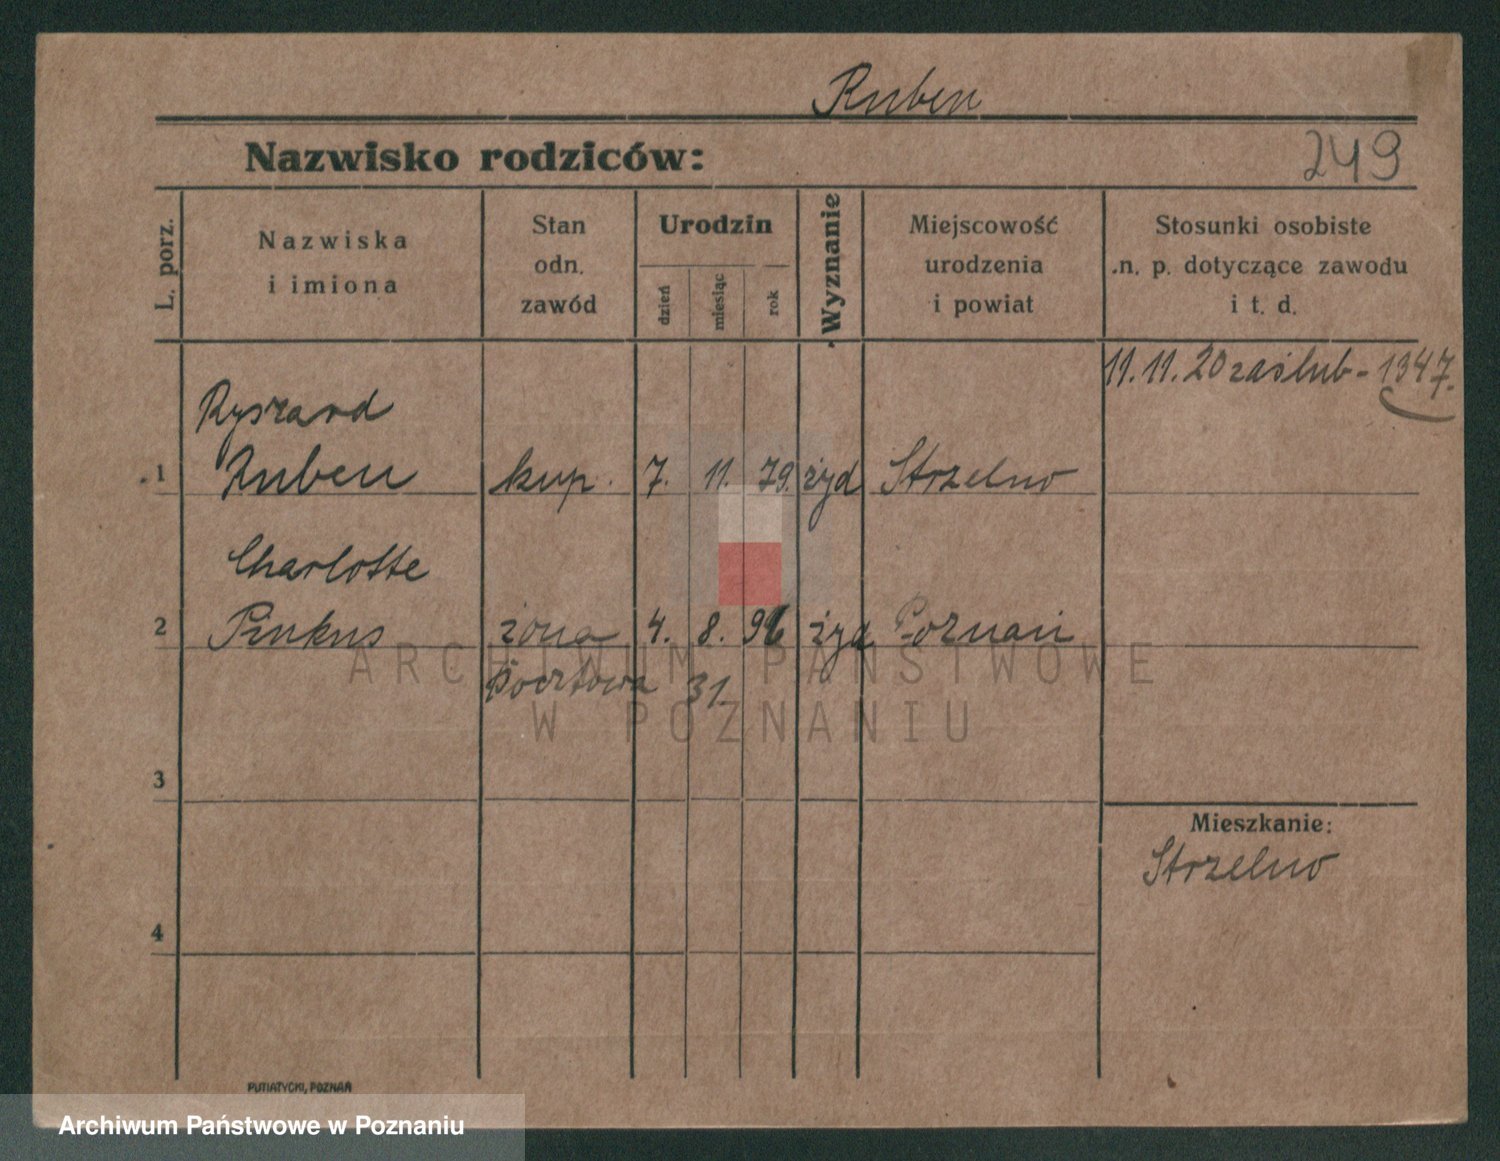 Ruben
Nazwisko rodziców:
249
L. porz.
Nazwiska
i imiona
Stan
odn.
zawód
Urodzin
dzień
miesiąc
rok
Wyznanie
Miejscowość
urodzenia
i powiat
Stosunki osobiste
n. p. dotyczące zawodu
i t. d.
11. 11. 20 zaślub - 1347.
Ryszard
1 Ruben kup. 7. 11. 79. żyd Strzelno
Charlotte
2 Pinkus żona 4. 8. 96 żyd Poznań
Pocztowa 31.
3
Mieszkanie:
Strzelno
4
PUTIATYCKI, POZNAŃ
ARCHIWUM PAŃSTWOWE
W POZNANIU
Archiwum Państwowe w Poznaniu